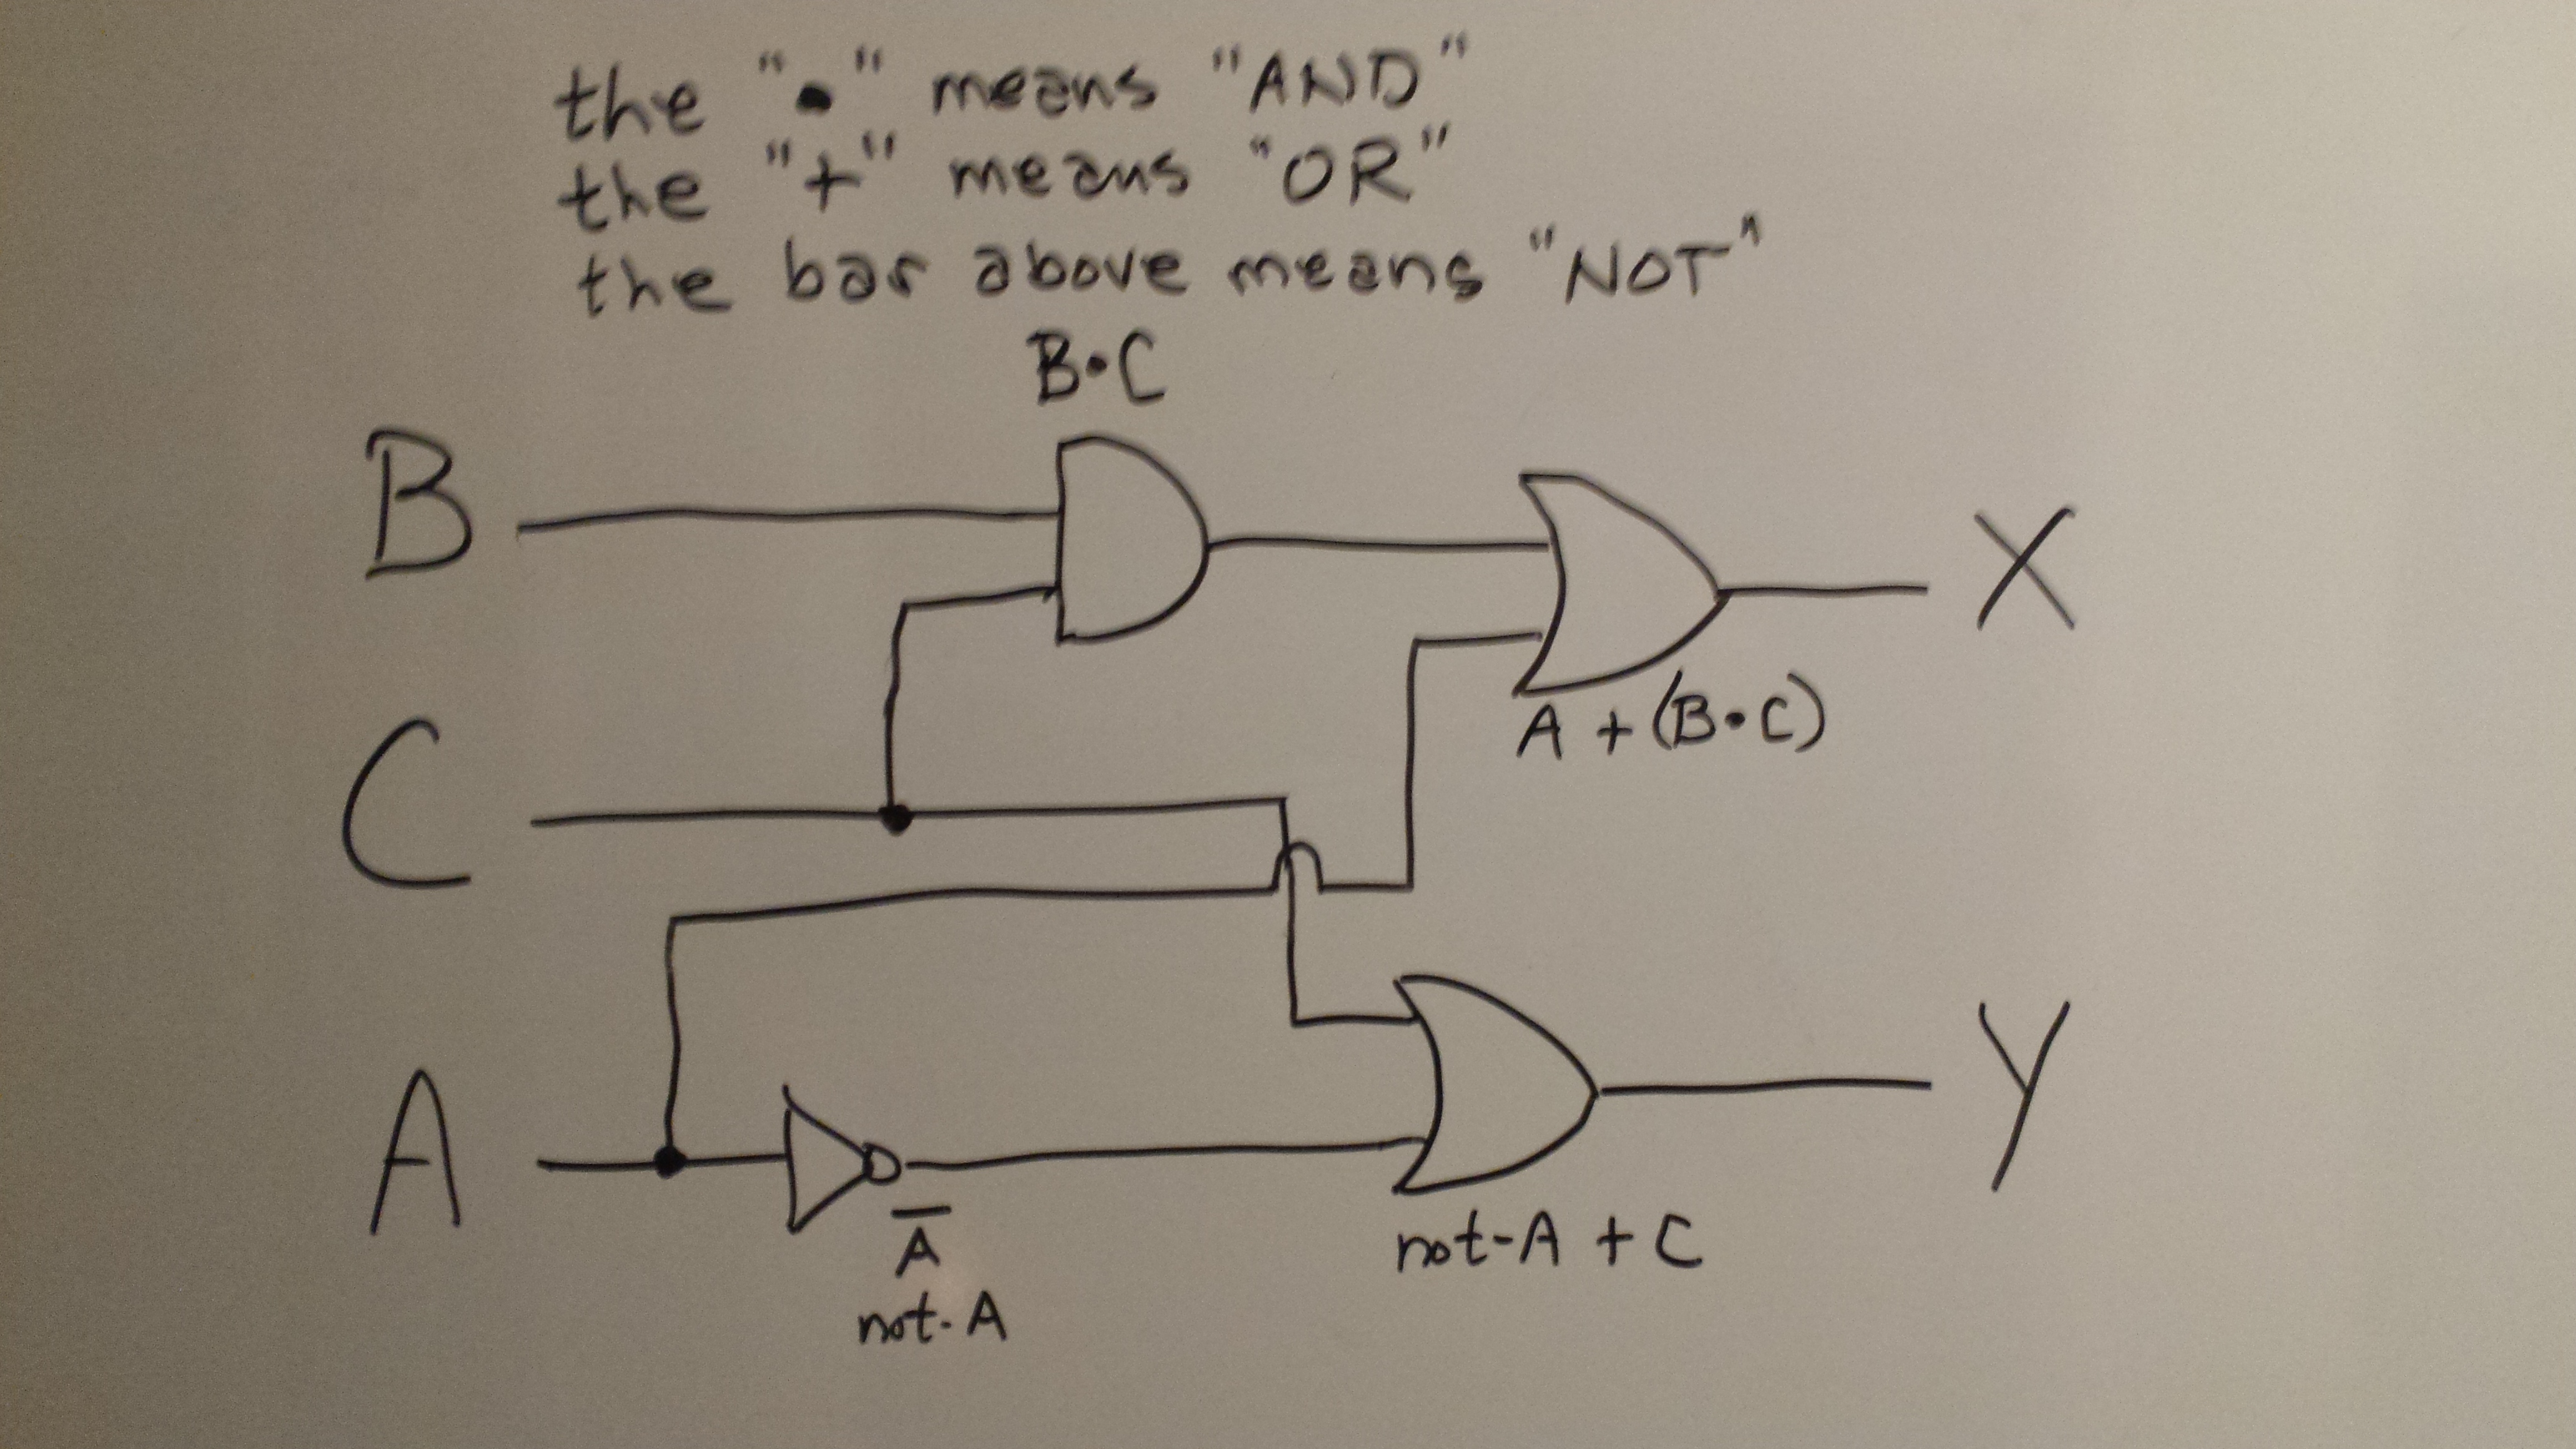 the "•" means "AND"
the "+" means "OR"
the bar above means "NOT"
B•C
B
X
A + (B•C)
C
A
Y
A̅
not-A
not-A + C